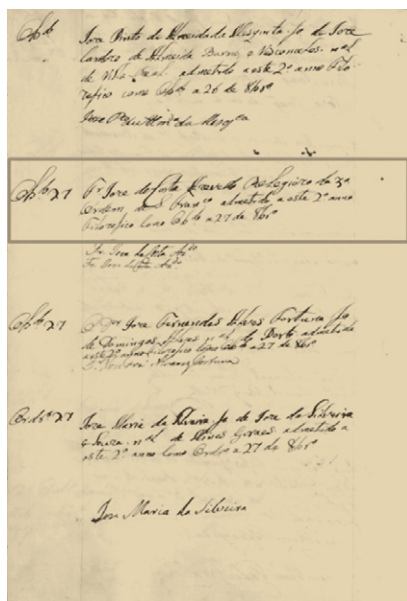 Obdo Joze Pinto de Almeida de Mesquita fo de Joze
Cardozo de Almeida
de Villa Real admetido a este 2º anno Filo
zofico como Obdo a 26 de 8bro
Obdo 27 Fr Joze da Costa Azevedo Relegiozo da 3a
Ordem de S Franco admetido a este 2º anno
Filozofico como Obdo a 27 de 8bro
Fr. Joze da Costa Azdo
Fr. Joze da Costa Azdo
Obdo 27 Joze Fernandes Alvares Fortuna fo
de Domingos do Porto admetido
a este 2º anno Filozofico como Obdo a 27 de 8bro
Alvares Fortuna
Ordro 27 Joze Maria da Silveira fo de Joze da Silveira
e Souza nal de Minas Geraes admetido a
este 2º anno como Ordro a 27 de 8bro
Joze Maria da Silveira